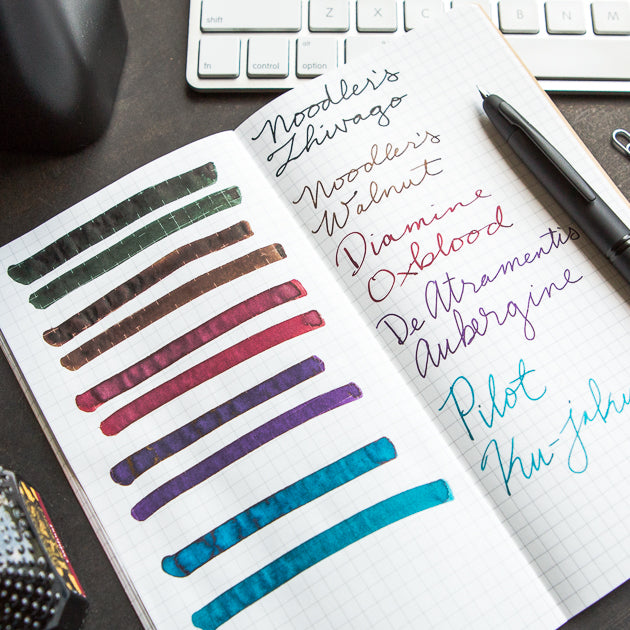 shift Z X C B N
fn control alt option
Noodler's
Zhivago
Noodler's
Walnut
Diamine
Oxblood
De Atramentis
Aubergine
Pilot
Ku-jaku